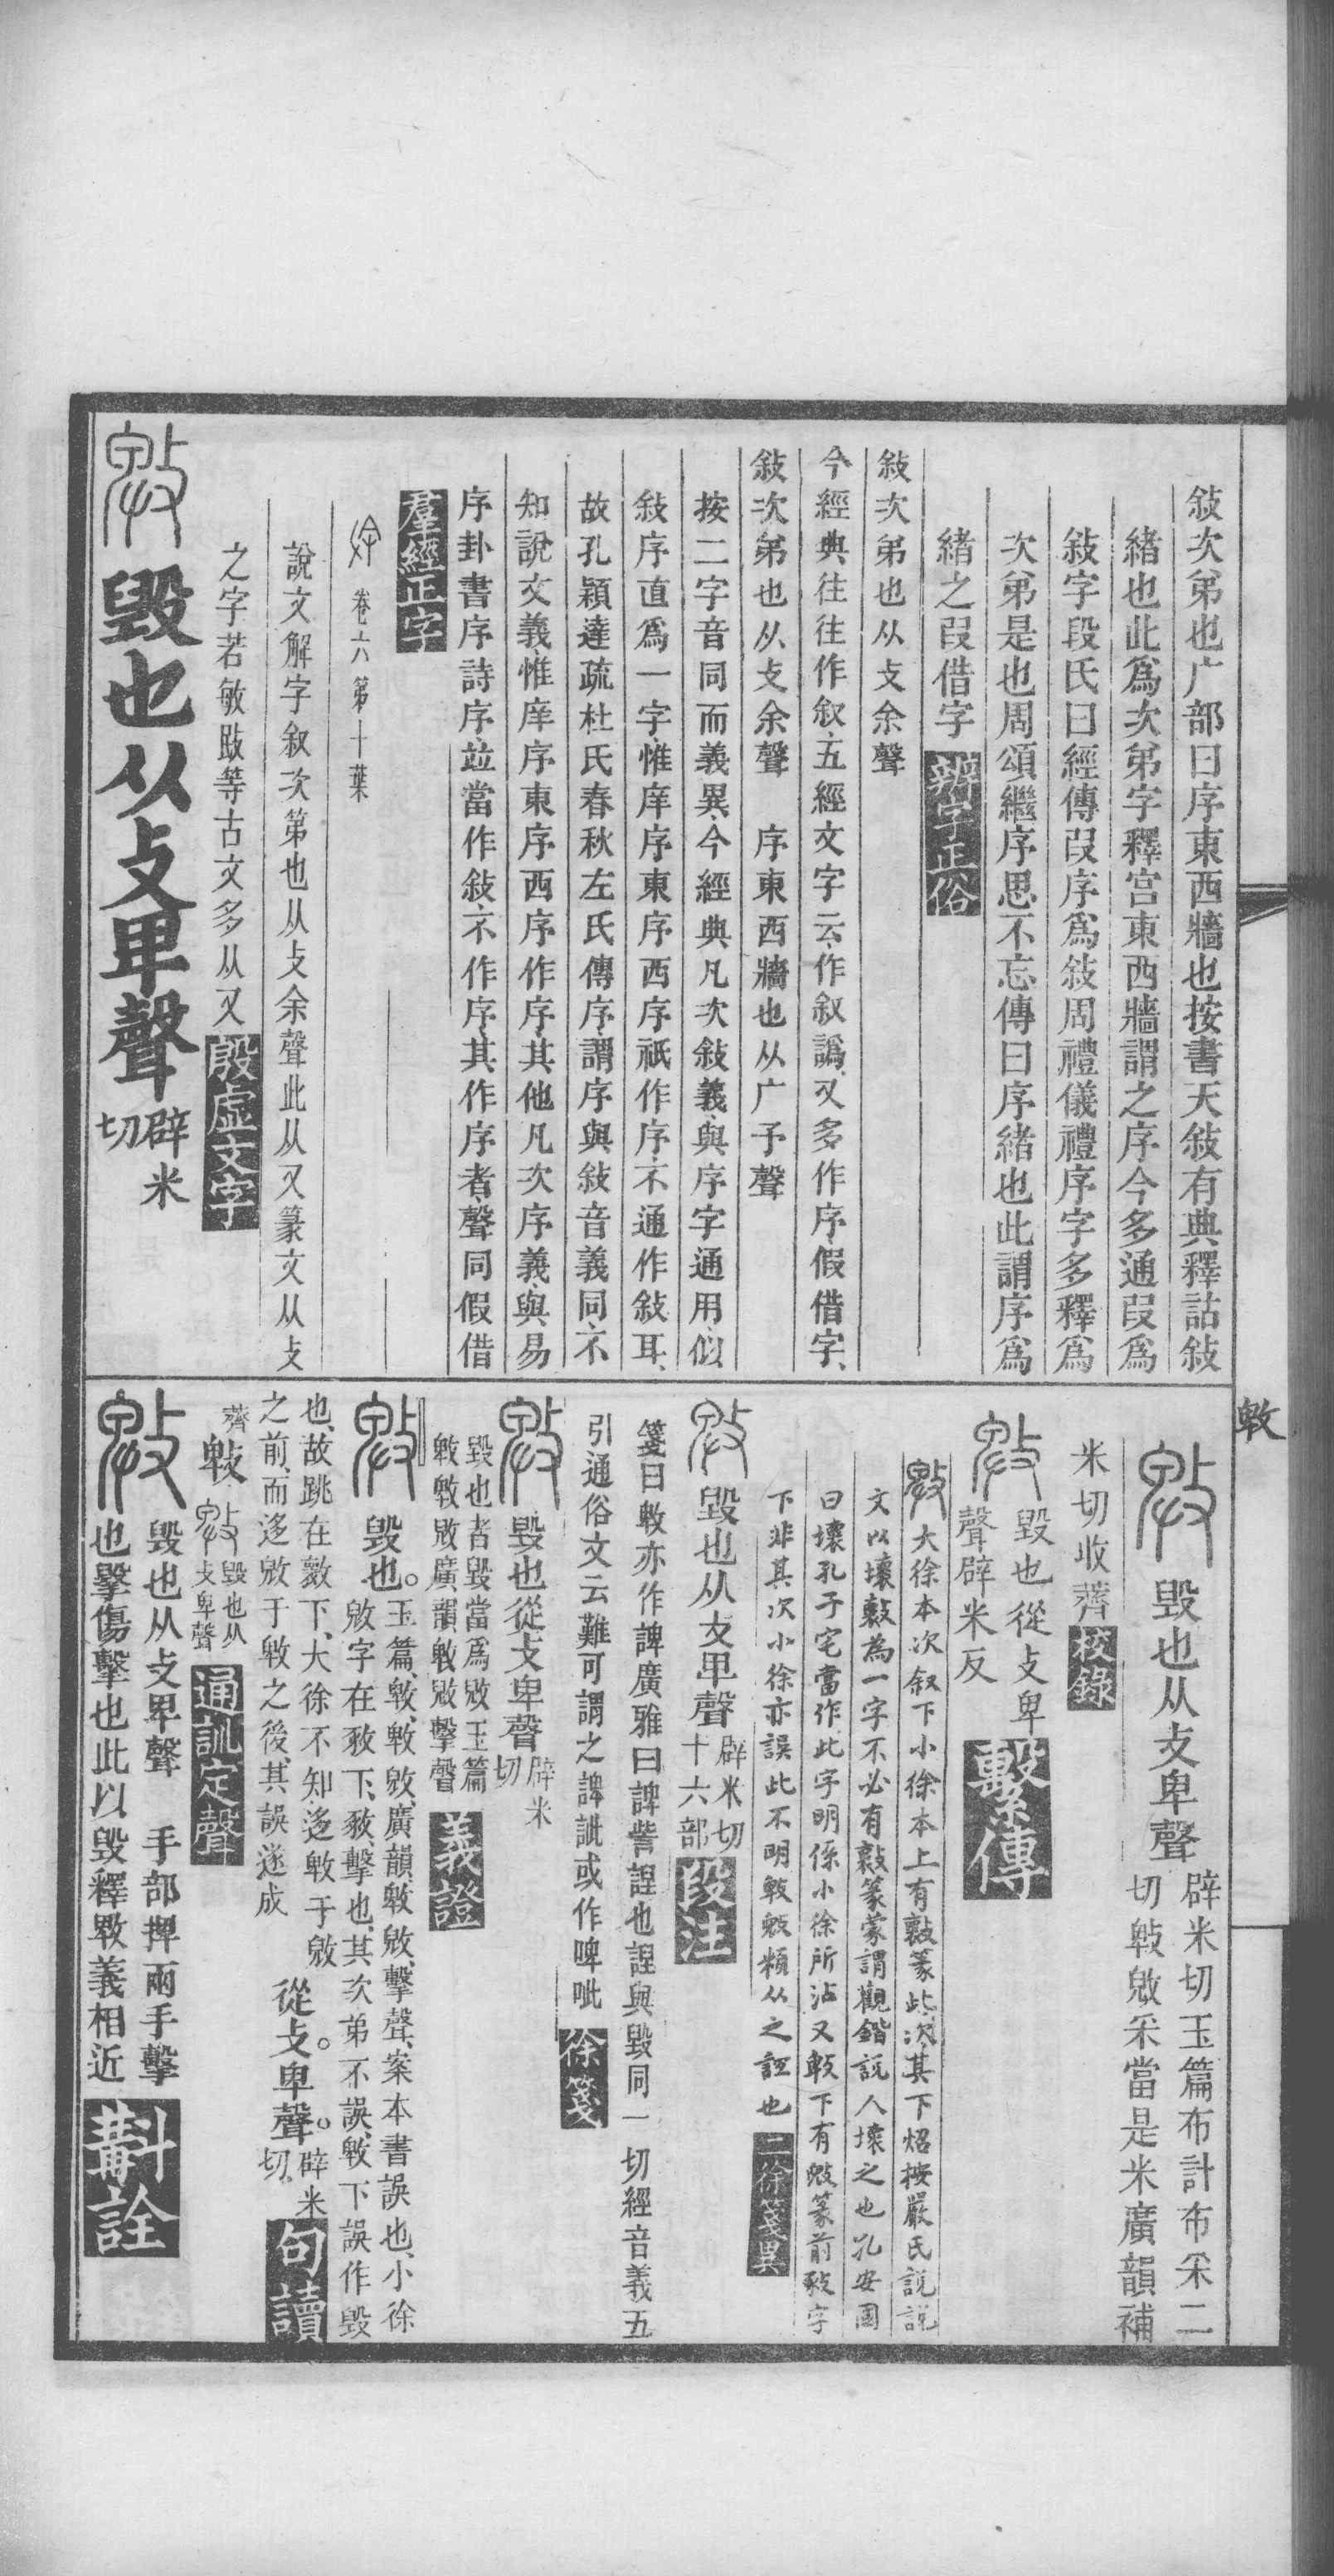 敍次弟也广部曰序東西牆也按書天敍有典釋詁敍
緒也此爲次弟字釋宫東西牆謂之序今多通叚爲
敍字段氏曰經傳叚序爲敍周禮儀禮序字多釋爲
次弟是也周頌繼序思不忘傳曰序緒也此謂序爲
緒之叚借字 辨字正俗
敍次弟也从攴余聲
今經典往往作叙五經文字云作叙譌又多作序假借字
敍次弟也从攴余聲 序東西牆也从广予聲
按二字音同而義異今經典凡次敍義與序字通用似
敍序直爲一字惟庠序東序西序祇作序不通作敍耳
故孔穎達疏杜氏春秋左氏傳序謂序與敍音義同不
知說文義惟庠序東序西序作序其他凡次序義與易
序卦書序詩序竝當作敍不作序其作序者聲同假借
羣經正字
卷六第十葉
說文解字叙次第也从攴余聲此从又篆文从攴
之字若敏𢼄等古文多从又 殷虛文字
毀也从攴卑聲 辟米
切
敤
毀也从攴卑聲 辟米切玉篇布計布采二
切㪏敓采當是米廣韻補
米切收薺 校錄
毀也從攴卑
聲辟米反 繫傳
大徐本次叙下小徐本上有敤篆此次其下炤按嚴氏説説
文以壞敤為一字不必有敤篆蒙謂觀鍇説人壞之也孔安國
曰壞孔子宅當作此字明係小徐所沾又㪏下有敓篆前敓字
下非其次小徐亦誤此不明㪏敓類从之誼也 二徐箋異
毀也从攴卑聲 辟米切
十六部 段注
箋曰㪏亦作諀廣雅曰諀訾諻也諻與毀同一切經音義五
引通俗文云難可謂之諀訿或作啤呲 徐箋
毀也從攴卑聲 辟米
切
毀也者毀當爲敓玉篇
㪏㪏敓廣韻㪏敓擊聲 義證
毀也。玉篇、㪏、㪏敓、廣韻、㪏敓、擊聲、案本書誤也、小徐
敓字在敓下、敓、擊也、其次弟不誤、㪏下誤作毀
也、故跳在斁下、大徐不知迻㪏于敓
之前、而迻敓于㪏之後、其誤遂成
從攴。卑聲。辟米
切 句讀
薺 㪏 毀也从
攴卑聲 通訓定聲
毀也从攴卑聲 手部捭兩手擊
也擊傷擊也此以毀釋㪏義相近 斠詮